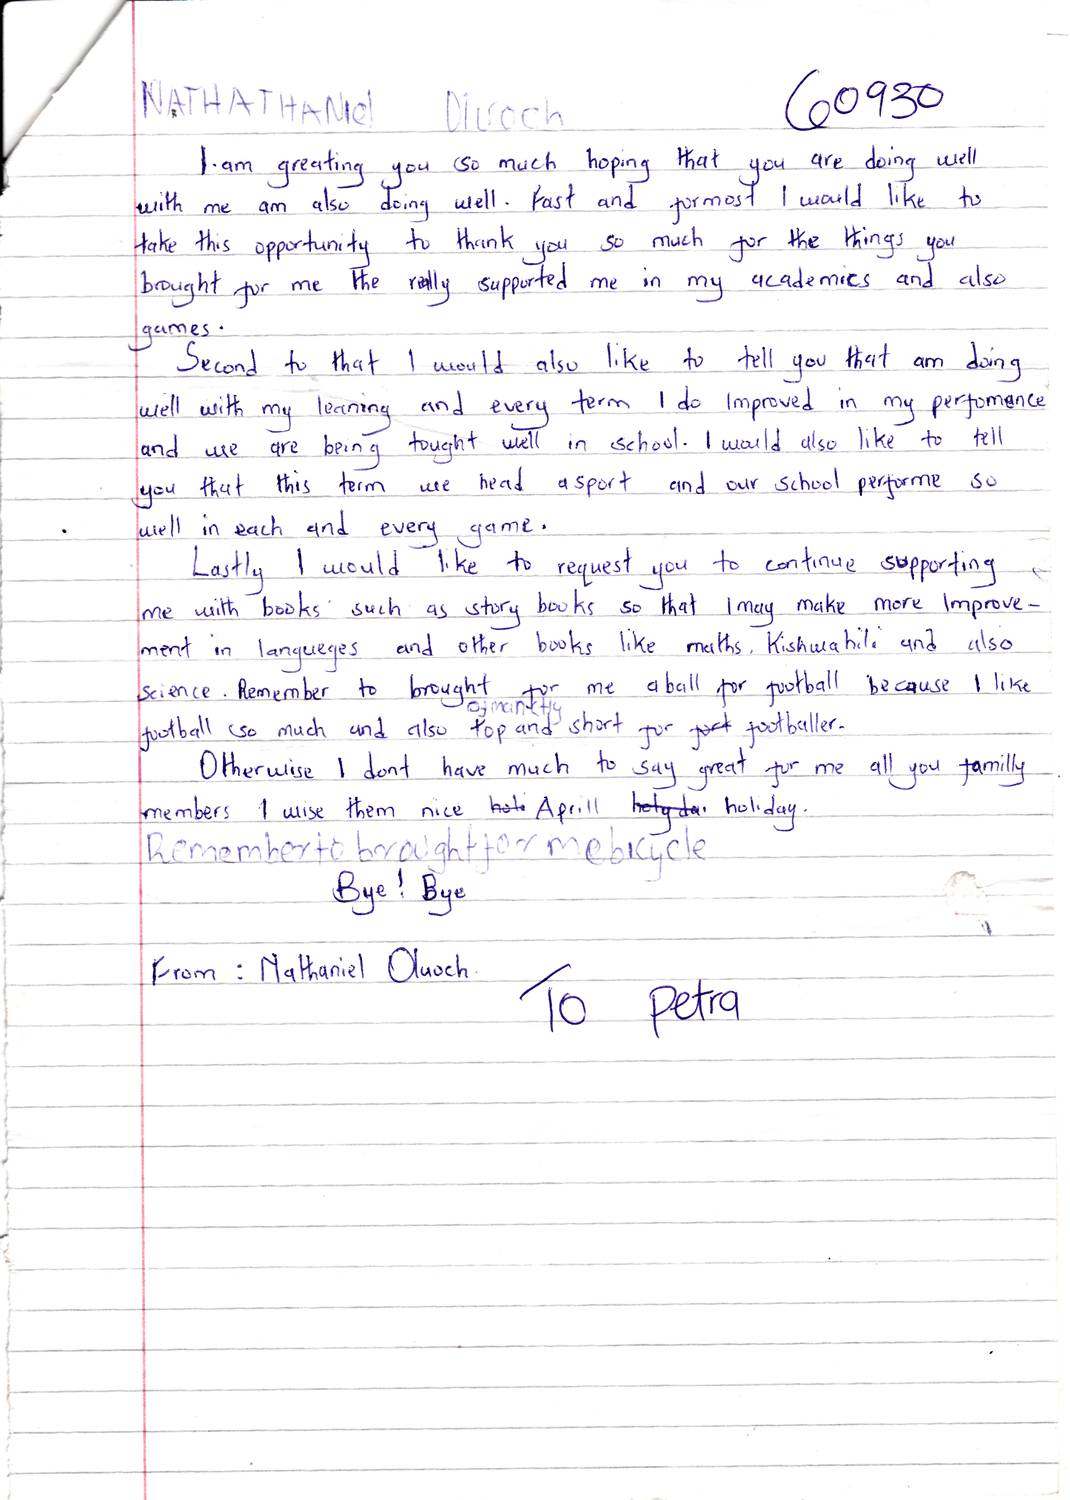 NATHATHANIel Oluoch 60930
I am greating you so much hoping that you are doing well
with me am also doing well. Fast and formost I would like to
take this opportunity to thank you so much for the things you
brought for me the really supported me in my academics and also
games.
Second to that I would also like to tell you that am doing
well with my leaning and every term I do Improved in my perfomance
and we are being tought well in school. I would also like to tell
you that this term we head a sport and our school performe so
well in each and every game.
Lastly I would like to request you to continue supporting
me with books such as story books so that I may make more Improve-
ment in langueges and other books like maths, Kishwahili and also
science. Remember to brought for me a ball for football because I like
football so much and also top and short for footballer.
Otherwise I dont have much to say great for me all you familly
members I wise them nice Aprill holiday.
Remember to brought for me bicycle
Bye! Bye
From: Nathaniel Oluoch.
To Petra